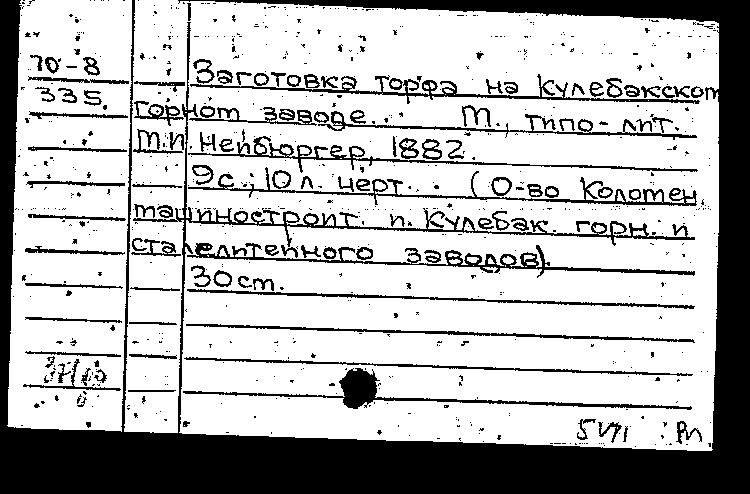 70-8
335.
Заготовка торфа на Кулебакском
горном заводе.. М., типо-лит.
М.И. Нейбюргер, 1882.
9с.; 10 л. черт. . (О-во Коломен.
машиностроит. и. Кулебак. горн. и
сталелитейного заводов).
30см.
5 VII